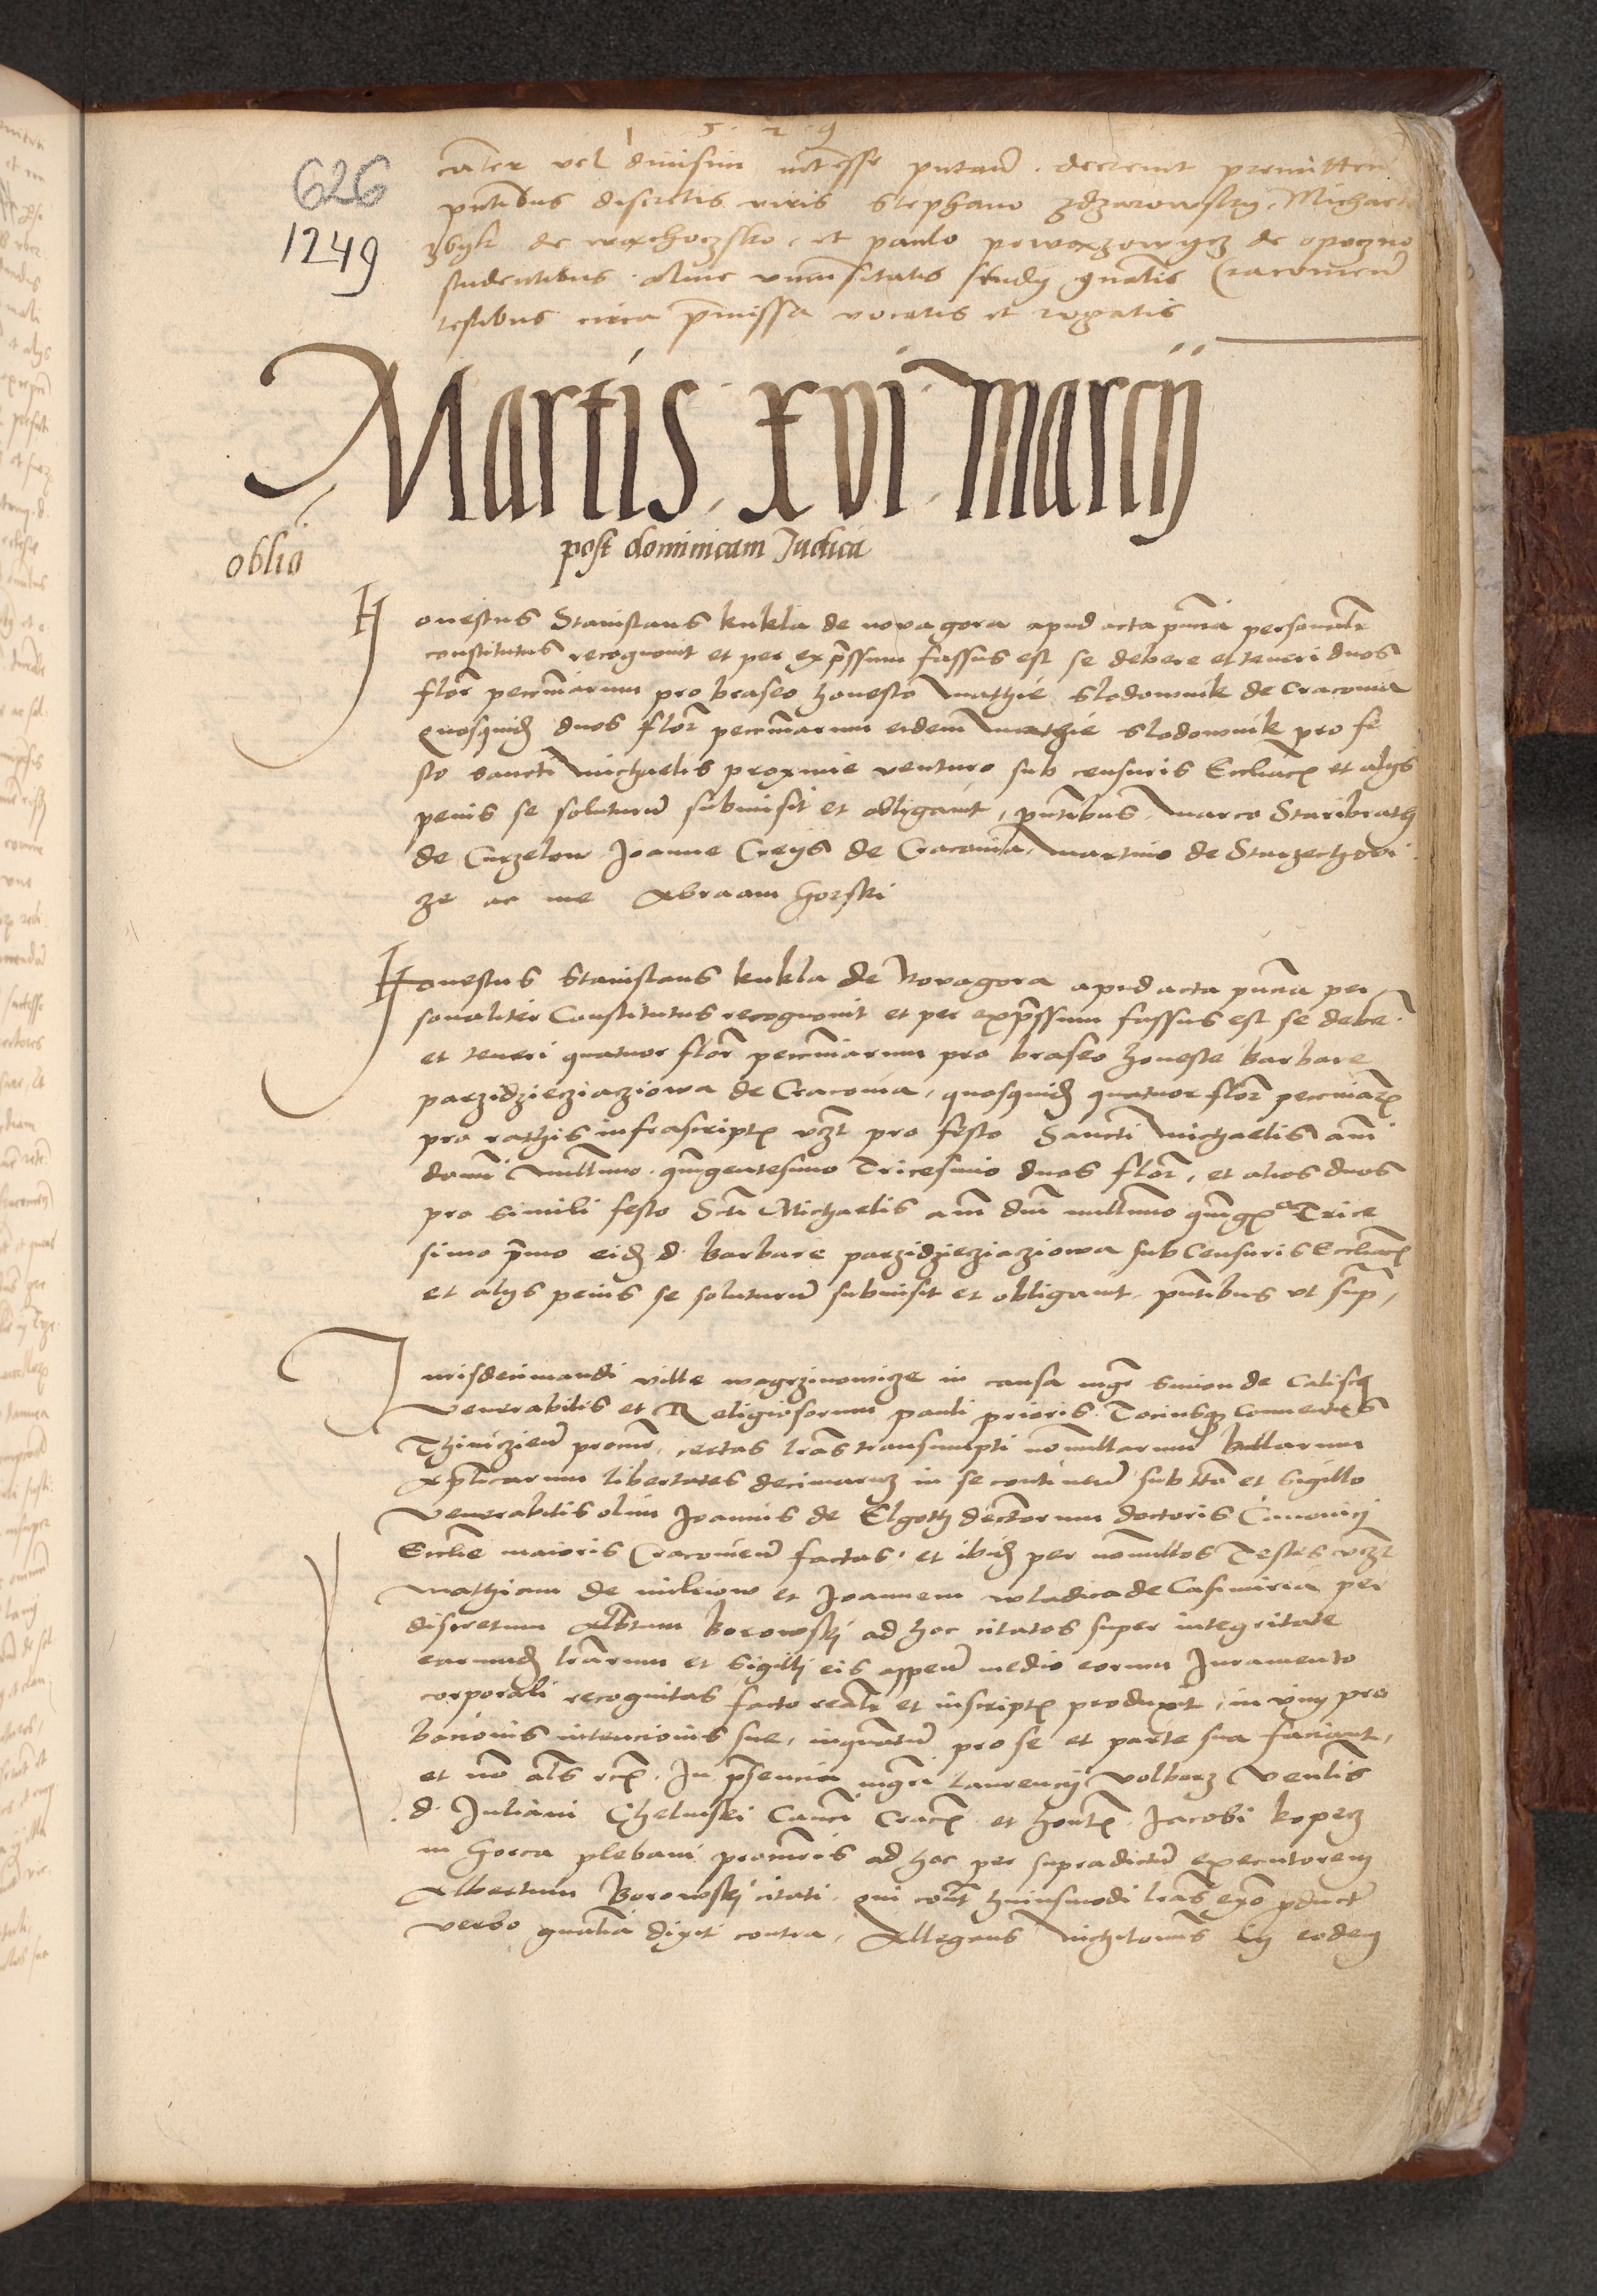 1529
626
1249
cater vel divisim interesse putaver decrevit premitten
pntibus discretis viris Stephano zdzarowsky, Michaele
zbyk de wxchoczsko, et paulo de opoczno
studentibus alme universitatis studij gnalis Cracovien
testibus circa pmissa vocatis et rogatis
Martis xvi marcij
post dominicam Iudica
oblio
Honestus Stanislaus kukla de novagora apud acta pntia personalr
constitutus recognovit et per expssum fassus est se debere et teneri duos
flor pecuniarum pro braseo honesto Mathie Slodownik de Cracovia
quosquid duos flor pecuniarum eidem Mathie Slodownik pro fe
sto sancti Michaelis proxime venturo sub censuris Eccliac et alys
penis se soluturu submisit et obligavit, pntibus Marco Staribrath
de Curzelow Joanne Creys de Cracovia, Martino de Starzechovi
ze ac me Abraam Gorski
Honestus Stanislaus kukla de Novagora apud acta pntia per
sonaliter Constitutus recognovit et per expssum fassus est se debe
et teneri quatuor flor pecuniarum pro braseo honeste Barbare
parzidziecziacziowa de Cracovia, quosquid quatuor flor pecuniar
pro rathis infrascript vzt pro festo Sancti Michaelis anni
domi millimo quingentesimo Tricesimo duos flor, et alios duos
pro simili festo Scti Michaelis anni dni millimo quingmo Trice
simo pmo eid d. Barbare parzidziecziacziowa sub Censuris Eccliac
et alys penis se soluturu submisit et obligavit pntibus ut sup,
Jurisdecimandi ville wagrzinowicze in causa mgri Simon de Calisch
Venerabilis et Religiosorum pauli prioris Tociusq Conventus
Thinczien produxit certas lras transumpti nonullarum bullarum
Aplicarum libertates decimaruz in se continen sub tto et Sigillo
Venerabilis olim Joannis de Elgoth decretorum doctoris Canonici
Ecclie maioris Cracovien factas, et ibid per nonullos Testes vzt
Mathiam de milciow et Joannem wladica de Casimiria per
discretum Albtum Borowskj ad hoc citatos super integritate
earund lrarum et Sigilli eis appen medio eorum Juramento
corporali recognitas facto realr et inscript produxit, in vim pro
bacionis intencionis sue, inquantu pro se et parte sua faciant,
et non als In psencia mgri Laurencij Volborz Venlis
d. Juliani Chelmski Canci Crac et hont Jacobi kopecz
in Gorca plebani ad hoc per supradictu executorem
Albertum Borowskj citati qui cont huiusmodi lras
verbo gnalia dixit contra, Allegans in eodem